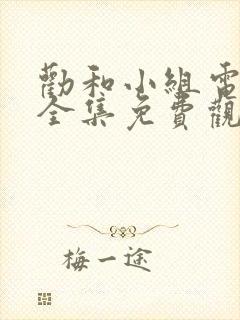 勸和小組電
全集免費觀
梅一途